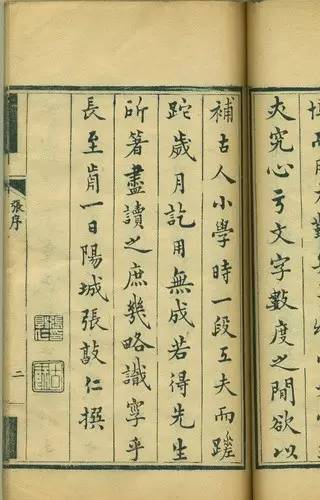 究心亏文字數度之閒欲以
補古人小學時一段工夫而蹉
跎歲月訖用無成若得先生
所著盡讀之庶幾略識寧乎
長至歬一日陽城張敦仁撰
張序
二